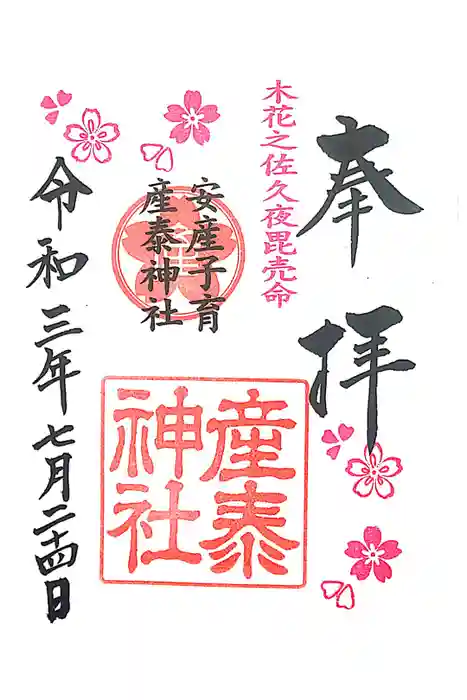 奉拝
木花之佐久夜毘売命
安産子育
産泰神社
産泰
神社
令和三年七月二十四日